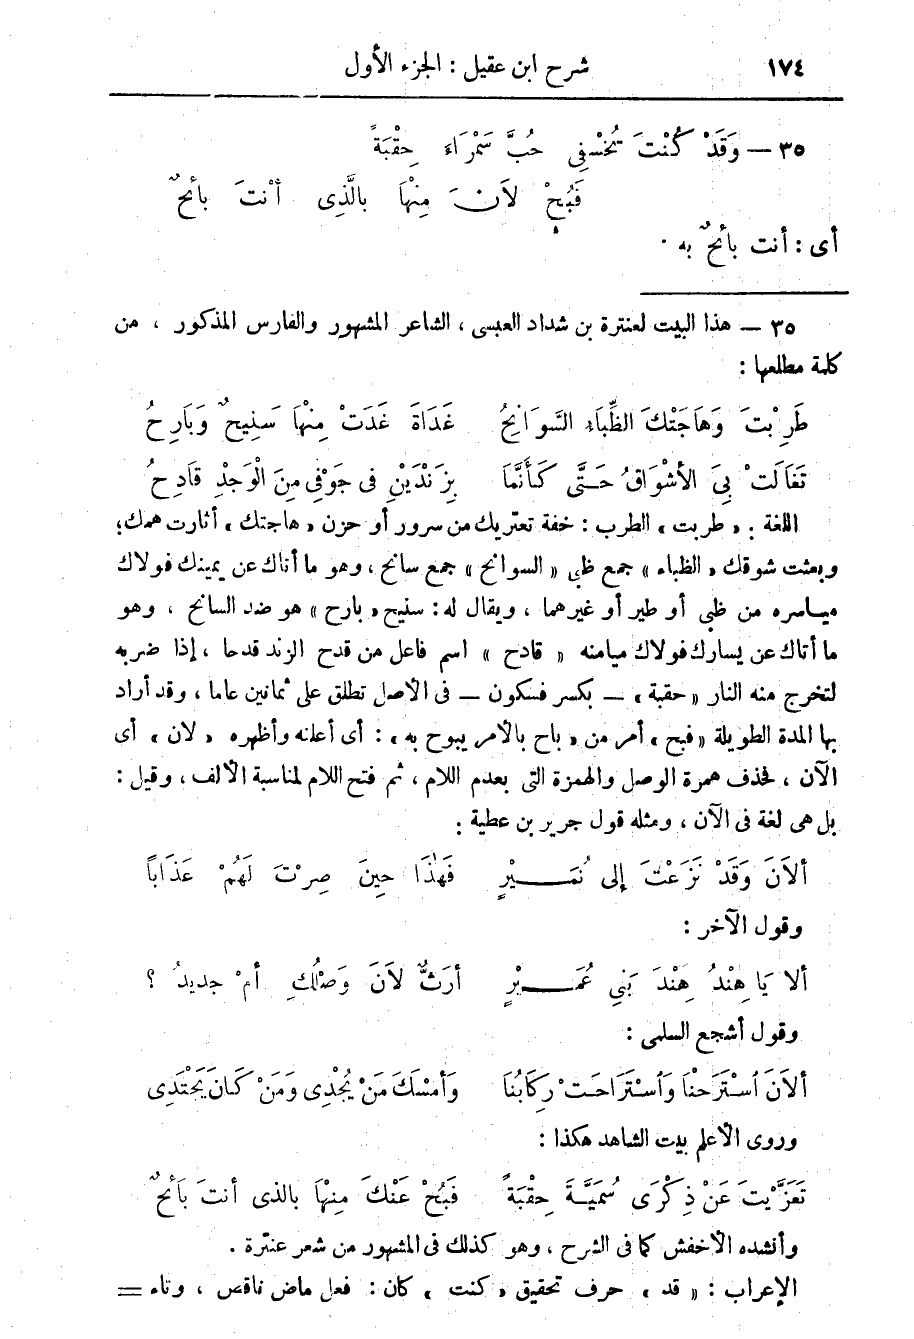 ١٧٤ شرح ابن عقيل : الجزء الأول
٣٥ — وَقَدْ كُنْتَ تُخْفِى حُبَّ سَمْرَاءَ حِقْبَةً
فَبُحْ لَانَ مِنْهَا بِالَّذِى أنْتَ بَائْحٌ
أى : أنت بأئحٌ به .
٣٥ — هذا البيت لعنترة بن شداد العبسى ، الشاعر المشهور والفارس المذكور ، من
كلمة مطلعها :
طَرِبْتَ وَهَاجَتْكَ الظِّبَاءُ السَّوَانِحُ غَدَاةَ غَدَتْ مِنْهَا سَنِيحٌ وَبَارِحُ
تَغَالَتْ بِىَ الأشْوَاقُ حَتَّى كَأَنَّمَا بِزَنْدَيْنِ فى جَوْفِى مِنَ الْوَجْدِ قَادِحُ
اللغة : « طربت » الطرب : خفة تعتريك من سرور أو حزن « هاجتك » أثارت همك ؛
وبعثت شوقك « الظباء » جمع ظبى « السوانح » جمع سانح ، وهو ما أتاك عن يمينك فولاك
مياسره من ظبى أو طير أو غيرهما ، ويقال له : سنيح « بارح » هو ضد السانح ، وهو
ما أتاك عن يسارك فولاك ميامنه « قادح » اسم فاعل من قدح الزند قدحا ، إذا ضربه
لتخرج منه النار « حقبة » — بكسر فسكون — فى الأصل تطلق على ثمانين عاما ، وقد أراد
بها المدة الطويلة « فبح » أمر من « باح بالأمر يبوح به » : أى أعلنه وأظهره « لان » أى
الآن ، فحذف همزة الوصل والهمزة التى بعدم اللام ، ثم فتح اللام لمناسبة الألف ، وقيل :
بل هى لغة فى الآن ، ومثله قول جرير بن عطية :
ألَانَ وَقَدْ نَزَعْتَ إلى نُمَيْرٍ فَهٰذَا حِينَ صِرْتَ لَهُمْ عَذَابَاً
وقول الآخر :
ألا يَا هِنْدُ هِنْدَ بَنِي عُمَيْرٍ أرَثٌّ لَانَ وَصْلُكِ أمْ جديدُ ؟
وقول أشجع السلمى :
ألَانَ اسْتَرَحْنَا وَاسْتَرَاحَتْ رِكَابُنَا وَأمْسَكَ مَنْ يُجْدِى وَمَنْ كَانَ يَجْتَدِى
وروى الأعلم بيت الشاهد هكذا :
تَعَزَّيْتَ عَنْ ذِكْرَى سُمَيَّةَ حِقْبَةً فَبُحْ عَنْكَ مِنْهَا بالذى أنتَ بَائْحٌ
وأنشده الأخفش كما فى الشرح ، وهو كذلك فى المشهور من شعر عنترة .
الإعراب : « قد » حرف تحقيق « كنت » كان : فعل ماض ناقص ، وتاء =